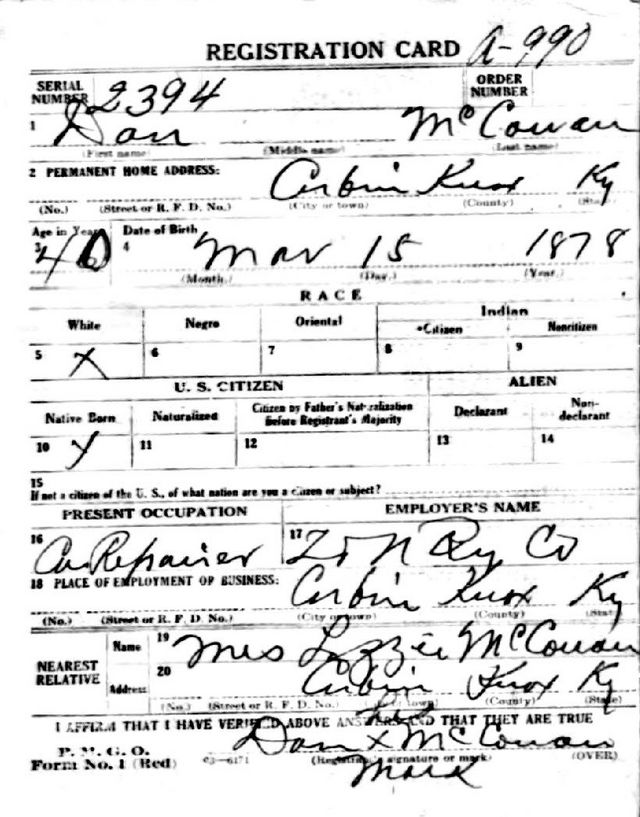 REGISTRATION CARD A-990
SERIAL NUMBER 2394 ORDER NUMBER
1 Dan McCowan
(First name) (Middle name) (Last name)
2 PERMANENT HOME ADDRESS: Corbin Knox Ky
(No.) (Street or R. F. D. No.) (City or town) (County) (State)
Age in Years Date of Birth
3 40 4 Mar 15 1878
(Month.) (Day.) (Year.)
RACE
White Negro Oriental Indian
Citizen Noncitizen
5 X 6 7 8 9
U. S. CITIZEN ALIEN
Native Born Naturalized Citizen by Father's Naturalization Before Registrant's Majority Declarant Non-declarant
10 X 11 12 13 14
15
If not a citizen of the U. S., of what nation are you a citizen or subject?
PRESENT OCCUPATION EMPLOYER'S NAME
16 Car Repairer 17 L & N Ry Co
18 PLACE OF EMPLOYMENT OR BUSINESS: Corbin Knox Ky
(No.) (Street or R. F. D. No.) (City or town) (County) (State)
NEAREST RELATIVE Name 19 Mrs Lizzie McCowan
Address 20 Corbin Knox Ky
(No.) (Street or R. F. D. No.) (City or town) (County) (State)
I AFFIRM THAT I HAVE VERIFIED ABOVE ANSWERS AND THAT THEY ARE TRUE
P. M. G. O.
Form No. 1 (Red) 03-6171 Dan X McCowan
(Registrant's signature or mark) (OVER)
Mark